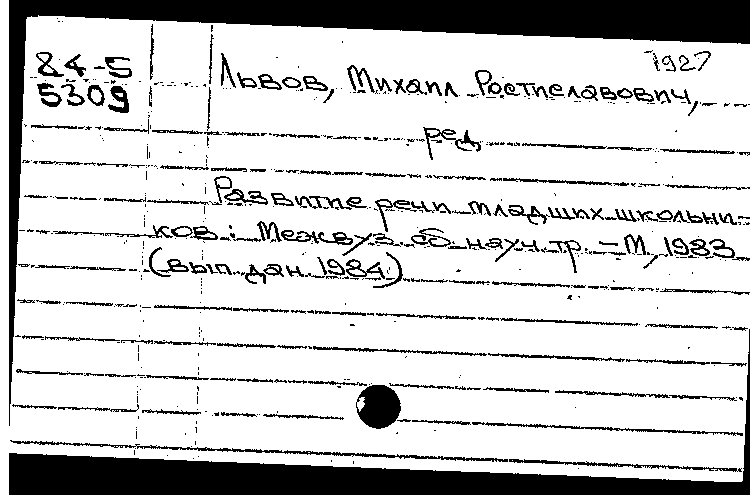 1927
84-5
5309
Львов, Михаил Ростиславович,
ред.
Развитие речи младших школьни-
ков: Межвуз. сб. науч. тр. - М, 1983
(вып. дан. 1984)